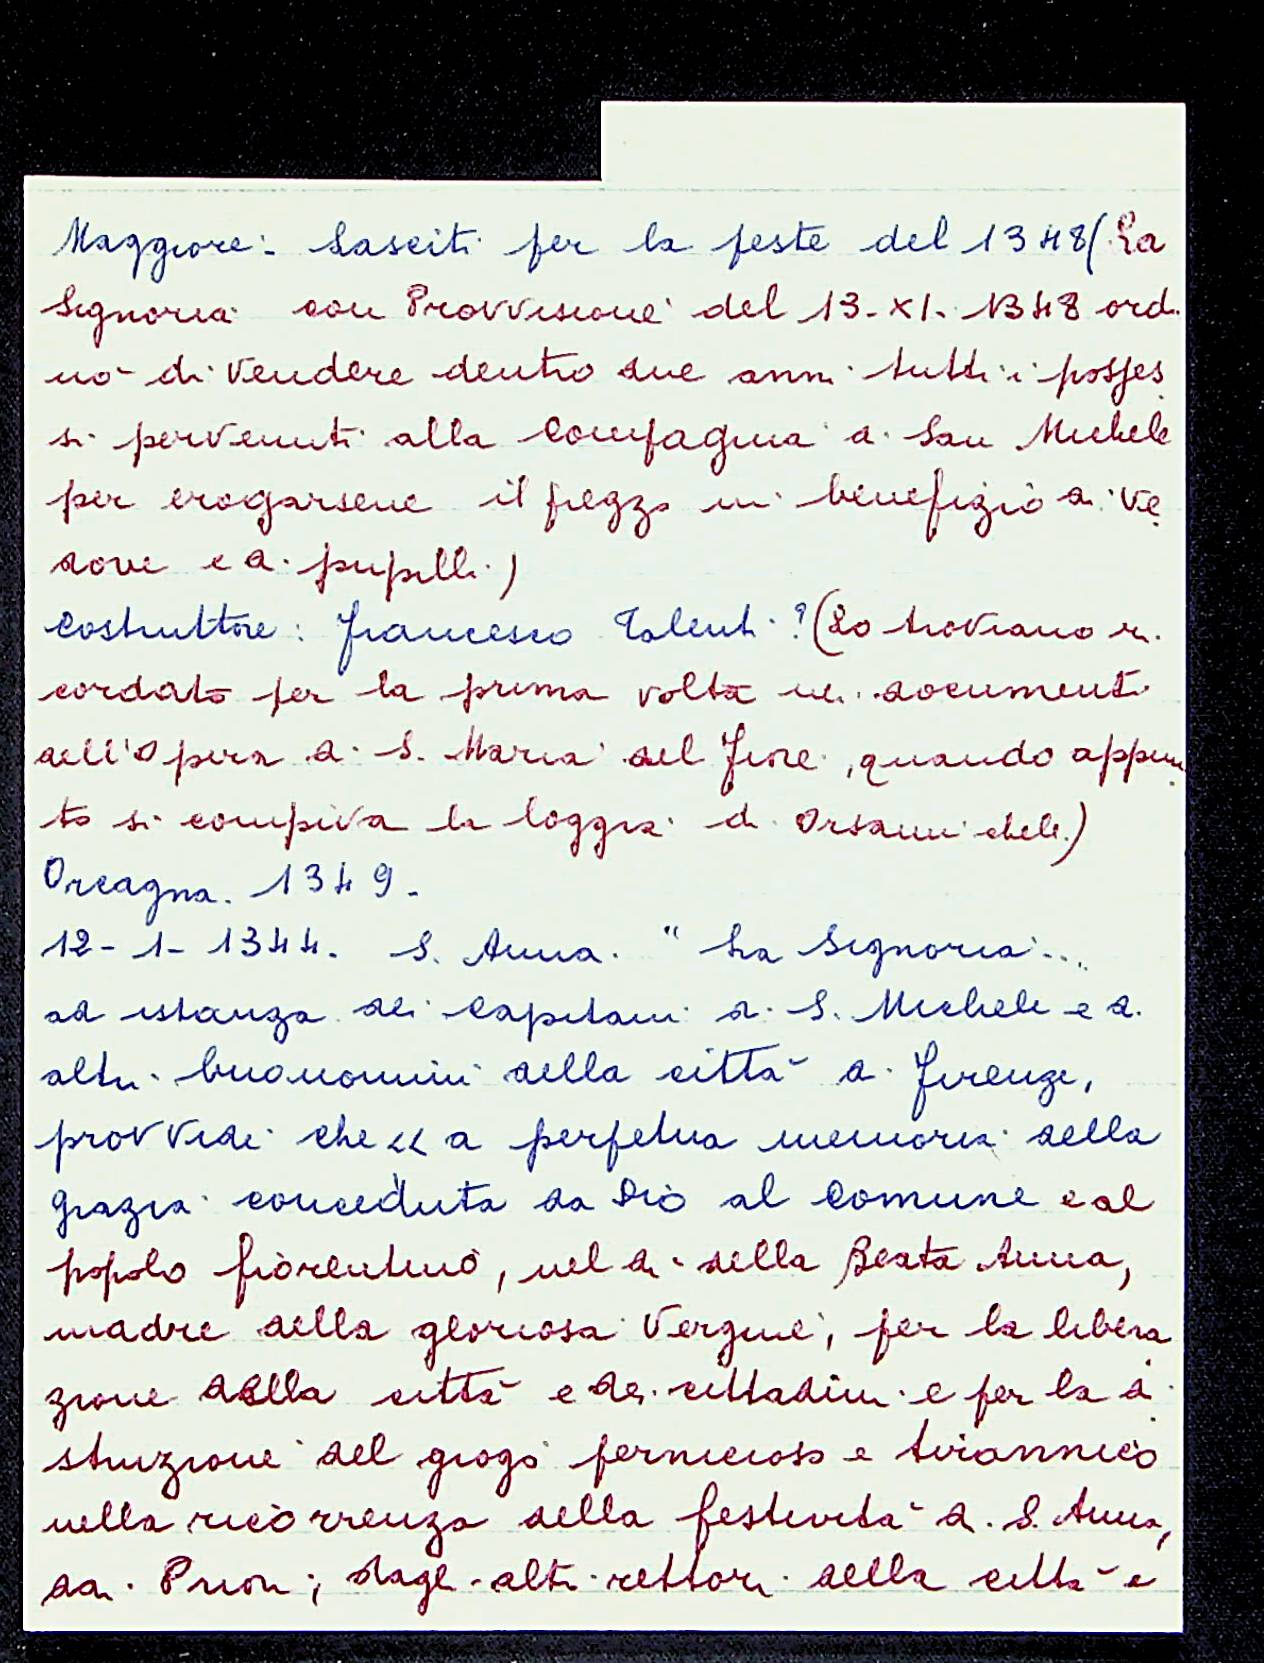 Maggiore: Lasciti per la peste del 1348 (La
Signoria con Provvisione del 13-XI-1348 ordi
nò di vendere dentro due anni tutti i posses
si pervenuti alla Compagnia di San Michele
per erogarsene il prezzo in benefizio di ve
dove e di pupilli.)
Costruttore: Francesco Talenti? (Lo troviamo ri
cordato per la prima volta nei documenti
dell'Opera di S. Maria del Fiore, quando appun
to si compiva la loggia di Orsanmichele.)
Orcagna. 1349.
12-1-1344. S. Anna. "La Signoria...
ad istanza dei Capitani di S. Michele e di
altri buonomini della città di Firenze,
provvide che << a perpetua memoria della
grazia conceduta da Dio al Comune e al
popolo fiorentino, nel dì della Beata Anna,
madre della gloriosa Vergine, per la libera
zione della città e dei cittadini e per la di
struzione del giogo pernicioso e tirannico
nella ricorrenza della festività di S. Anna,
dai Priori; dagli altri rettori della città e